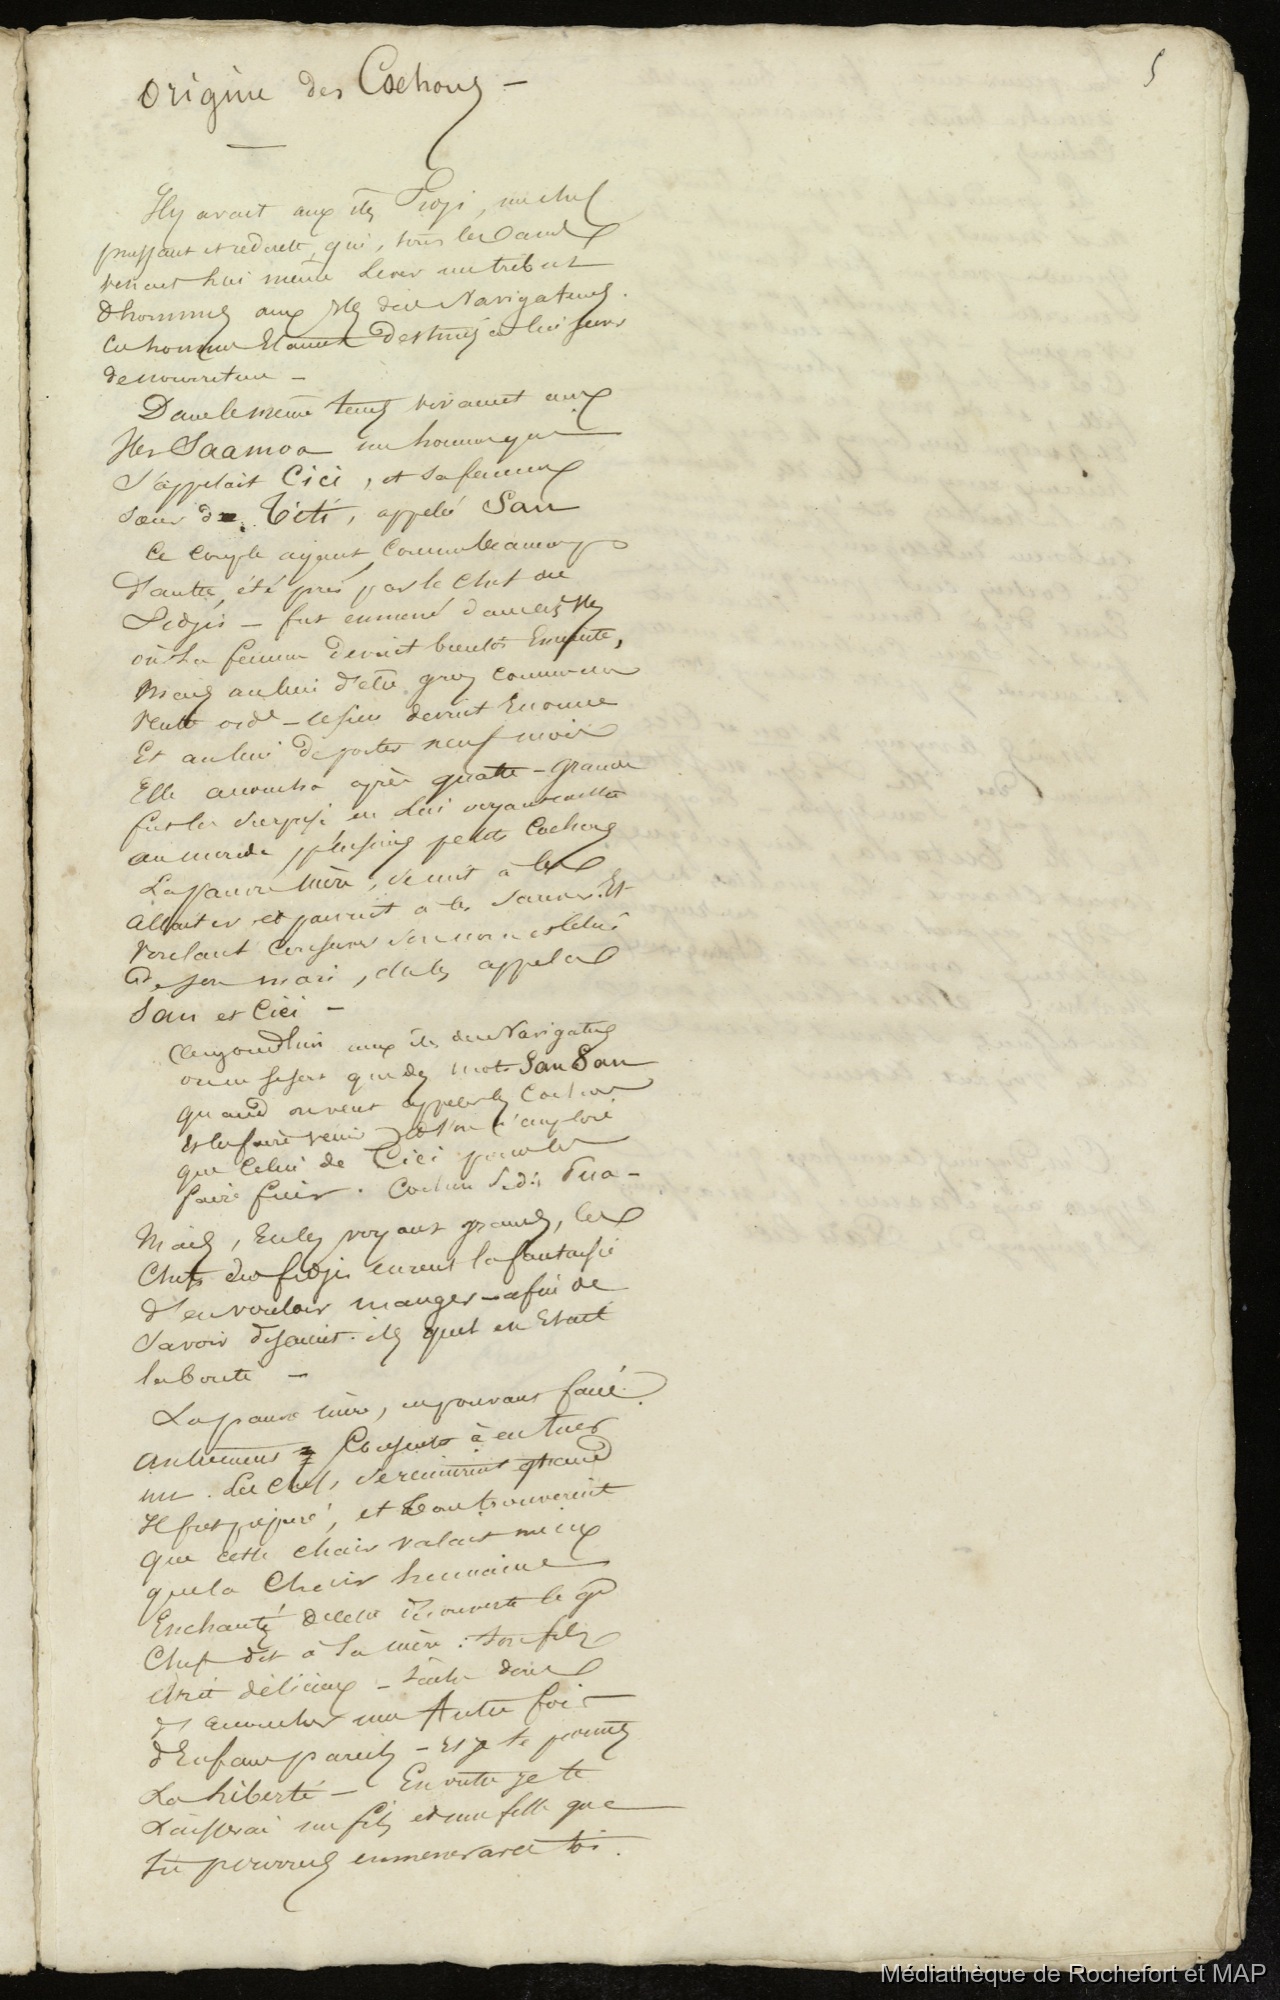 5
Origine des Cochons —
Il y avait aux îles Fidji, un chef
puissant et redouté, qui, tous les ans
venait lui même lever un tribut
d'hommes aux îles des Navigateurs.
Ces hommes étaient destinés à lui servir
de nourriture —
Dans le même tems vivaient aux
îles Saamoa un homme qui
s'appelait Cici, et sa femme
sœur de Titi, appelé San
Ce couple ayant, comme beaucoup
d'autre, été pris par le Chef des
Fidjis — fut emmené dans ces îles
où la femme devint bientôt Enceinte,
Mais au lieu d'être gros comme un
Ventre ord^e — le sien devint Enorme
Et au lieu de porter neuf mois
Elle accoucha après quatre — grande
fut la surprise en lui voyant mettre
au monde plusieurs petits Cochons
La pauvre Mère, se mit à les
allaiter et parvint à les sauver. Et
voulant conserver son nom et celui
de son mari, elle les appela
San et Cici —
Aujourd'hui aux îles des Navigateurs
on ne se sert que des mots San San
quand on veut appeler les Cochons
et les faire venir et l'on n'emploie
que celui de Cici pour les
faire fuir. Cochon se dit Pua —
Mais, En les voyant grands, les
Chefs des fidjis eurent la fantaisie
d'en vouloir manger — afin de
savoir disaient-ils quel en Etait
le Goût —
La pauvre mère, ne pouvant faire
autrement Consentit à en tuer
un. Les Chefs, se réunirent quand
Il fut préparé, et Tous trouvèrent
que cette chair valait mieux
que la Chair humaine
Enchanté de cette découverte le g^d
Chef dit à la mère : ton fils
était délicieux — tâche donc
d'accoucher une Autre fois
d'Enfans pareils — et je te promets
La Liberté — En outre je te
Laisserai un fils et une fille que
tu pourras emmener avec toi.
Médiathèque de Rochefort et MAP